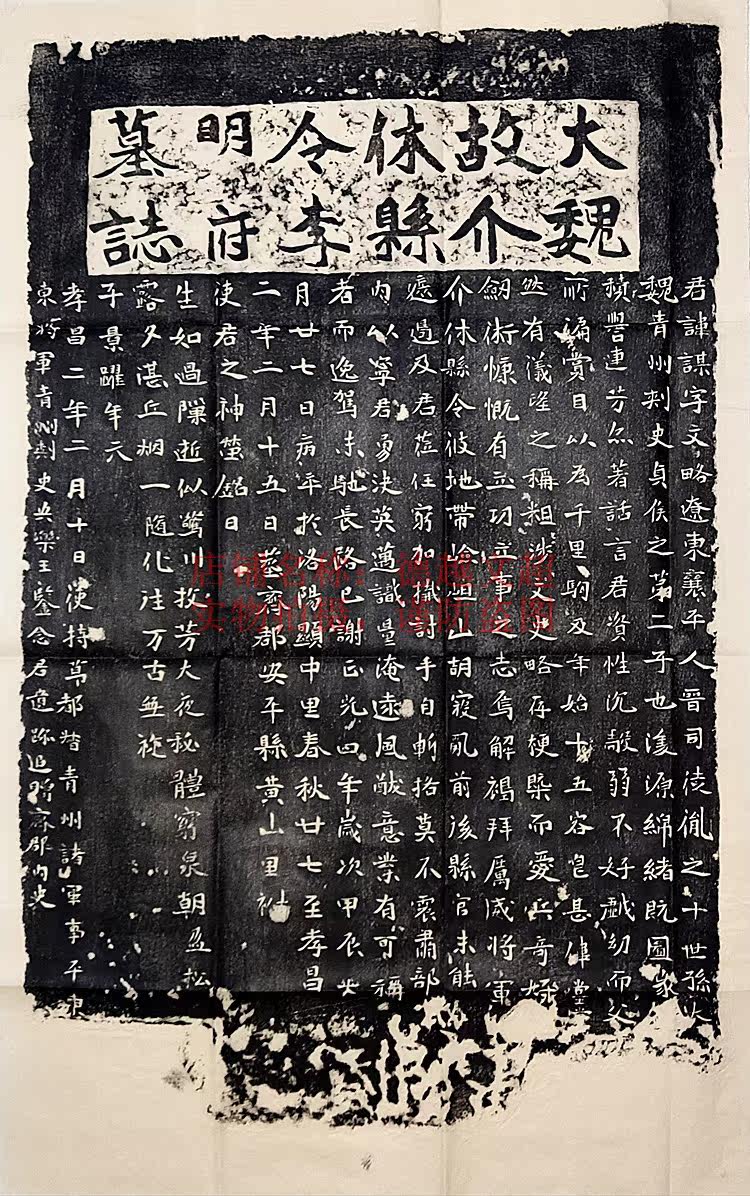 大魏
故介
休縣
令李
明府
墓誌
君諱謀字文略遼東襄平人晉司徒胤之十世孫大
魏青州刺史貞侯之第二子也濬源綿緒既圖家
積譽連芳亦著話言君資性沉毅弱不好戲幼而父
所論賞目以為千里駒及年始十五容皃甚偉堂
然有儀望之稱粗涉文史略存梗槩而愛兵奇好
劒術慷慨有立功立事之志焉解褐拜厲威將軍
介休縣令彼地帶岭嶇山胡寇亂前後縣官未能
遏及君莅任窮加攝討手自斬挌莫不震肅部
內以寧君勇決英邁識量淹遠風猷意業有可稱
者而逸駕未馳長路已謝正光四年歲次甲辰
月廿七日病卒於洛陽顯中里春秋廿七至孝昌
二年二月十五日葬齊郡安平縣黃山里祔
使君之神塋銘曰
生如過隟逝似驚川投芳大夜秘體窮泉朝盈松
露夕湛丘烟一隨化往万古無旋
子景躍年元
孝昌二年二月十日使持節都督青州諸軍事平東
東將軍青州刺史安樂王鑒念君遺跡追贈齊郡內史
店铺名称：德越文超
实物拍摄，谨防盗图